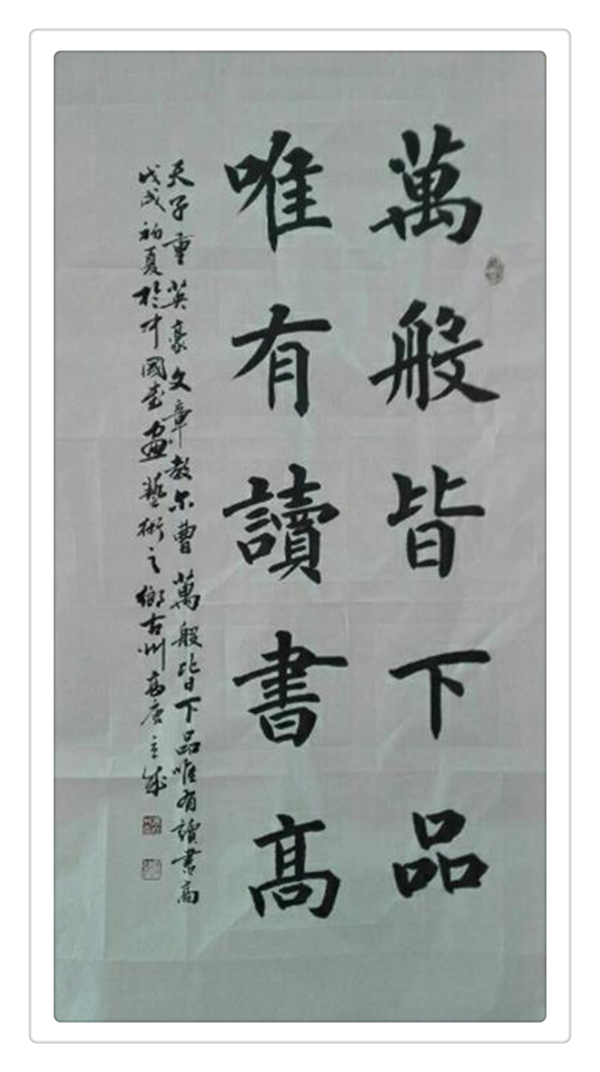 萬般皆下品
唯有讀書高
天子重英豪文章教尔曹萬般皆下品唯有讀書高
戊戌初夏於中國書画藝術之鄉古州高唐立成